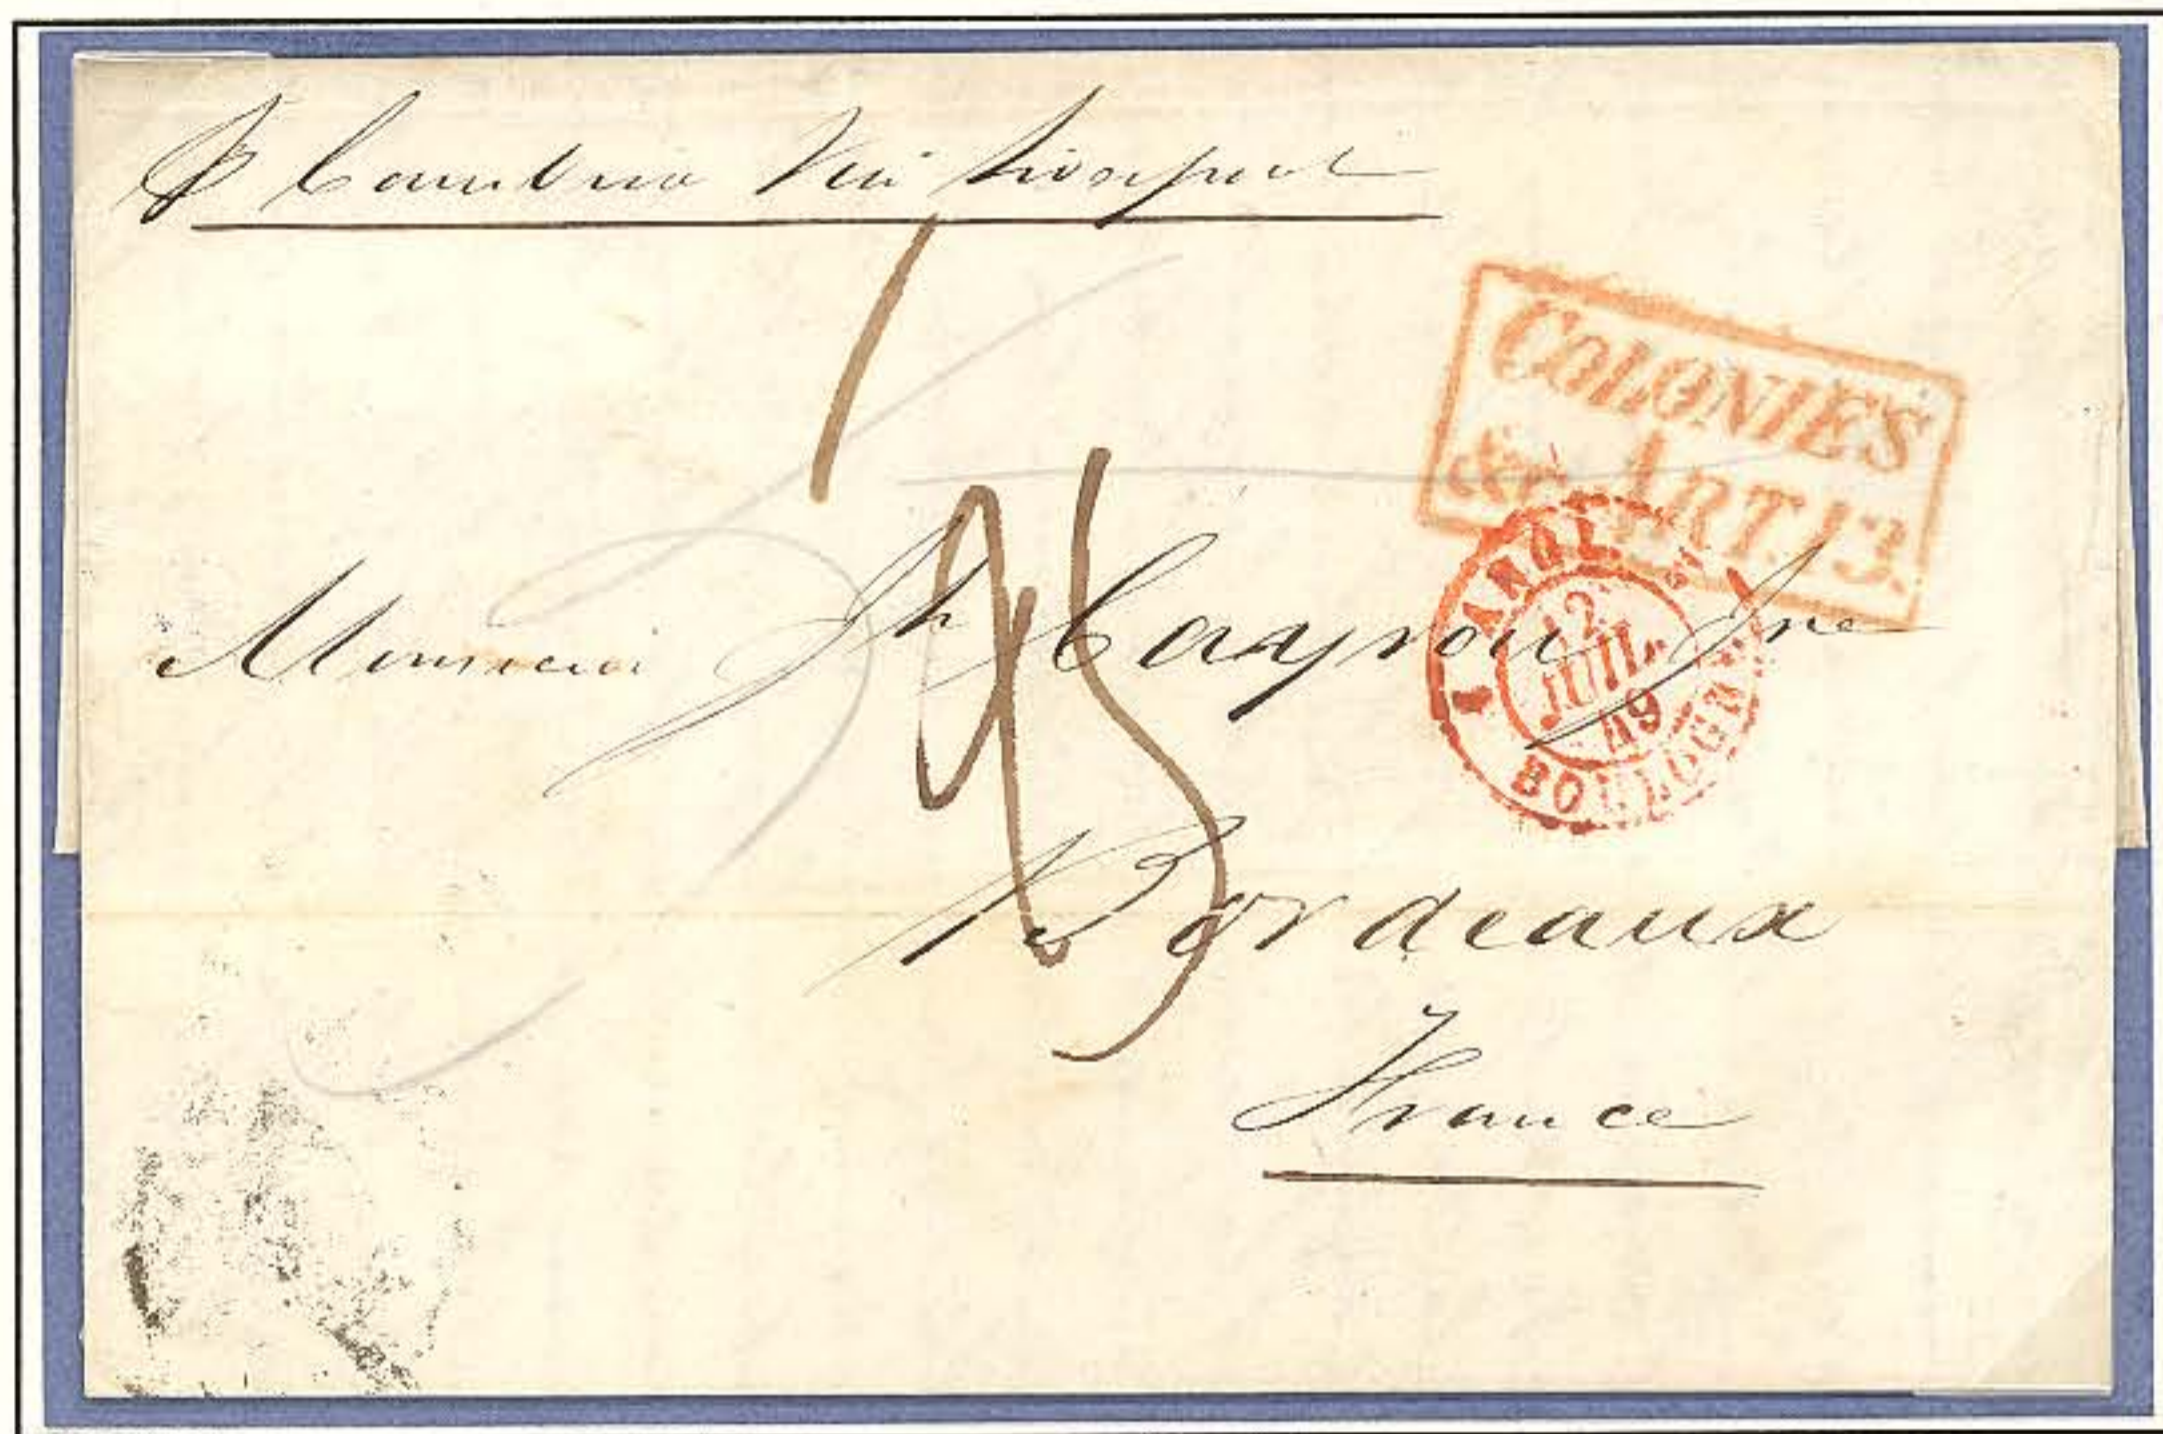 P Cambria Via Liverpool
COLONIES
&c. ART. 13.
ANGL.
12
JUIL.
49
BOULOGNE
Monsieur Jh Cayrou Jne
Bordeaux
France